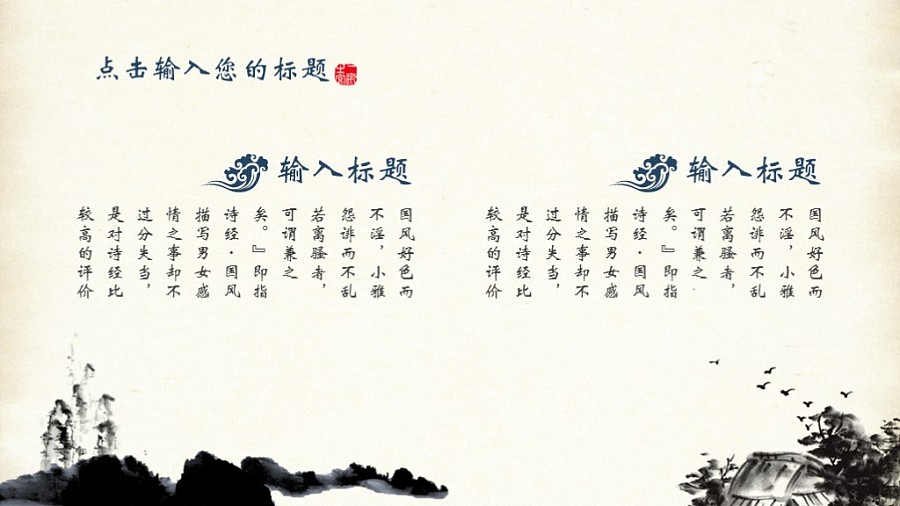 点击输入您的标题
输入标题
国风好色而
不淫，小雅
怨诽而不乱
若离骚者，
可谓兼之
矣。』即指
诗经·国风
描写男女感
情之事却不
过分失当，
是对诗经比
较高的评价
输入标题
国风好色而
不淫，小雅
怨诽而不乱
若离骚者，
可谓兼之
矣。』即指
诗经·国风
描写男女感
情之事却不
过分失当，
是对诗经比
较高的评价